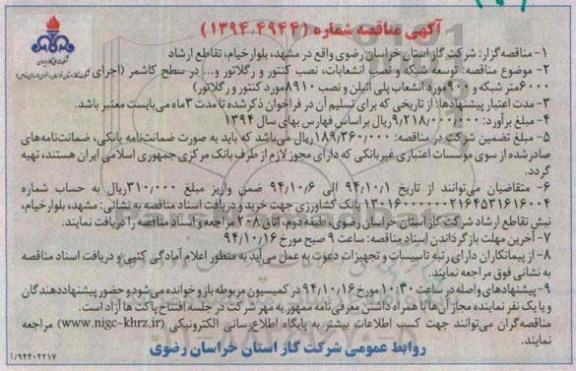 آگهی مناقصه شماره (۱۳۹۴.۴۹۴۴)
شرکت ملی گاز ایران
۱- مناقصه‌گزار: شرکت گاز استان خراسان رضوی واقع در مشهد، بلوار خیام، تقاطع ارشاد
۲- موضوع مناقصه: توسعه شبکه و نصب انشعابات، نصب کنتور و رگلاتور و... در سطح کاشمر (اجرای
۶۰۰۰متر شبکه و ۹۰۰مورد انشعاب پلی اتیلن و نصب ۸۹۱۰مورد کنتور و رگلاتور)
۳- مدت اعتبار پیشنهادها: از تاریخی که برای تسلیم آن در فراخوان ذکر شده تا مدت ۳ماه می‌بایست معتبر باشد.
۴- مبلغ برآورد: ۹/۲۱۸/۰۰۰/۰۰۰ریال بر اساس فهارس بهای سال ۱۳۹۴
۵- مبلغ تضمین شرکت در مناقصه: ۱۸۹/۳۶۰/۰۰۰ریال می‌باشد که باید به صورت ضمانت‌نامه بانکی، ضمانت‌نامه‌های
صادرشده از سوی موسسات اعتباری غیربانکی که دارای مجوز لازم از طرف بانک مرکزی جمهوری اسلامی ایران هستند، تهیه
گردد.
۶- متقاضیان می‌توانند از تاریخ ۹۴/۱۰/۱ الی ۹۴/۱۰/۶ ضمن واریز مبلغ ۳۱۰/۰۰۰ریال به حساب شماره
بانک کشاورزی جهت خرید و دریافت اسناد مناقصه به نشانی: مشهد، بلوار خیام،
نبش تقاطع ارشاد شرکت گاز استان خراسان رضوی، طبقه دوم، اتاق ۲۰۸ مراجعه و اسناد مناقصه را دریافت نمایند.
۷- آخرین مهلت بازگرداندن اسناد مناقصه: ساعت ۹ صبح مورخ ۹۴/۱۰/۱۶
۸- از پیمانکاران دارای رتبه تاسیسات و تجهیزات دعوت به عمل می‌آید به منظور اعلام آمادگی کتبی و دریافت اسناد مناقصه
به نشانی فوق مراجعه نمایند.
۹- پیشنهادهای واصله در ساعت ۱۰:۳۰ مورخ ۹۴/۱۰/۱۶ در کمیسیون مربوطه باز و خوانده می‌شود و حضور پیشنهاددهندگان
و یا یک نفر نماینده مجاز آن‌ها با همراه داشتن معرفی‌نامه ممهور به مهر شرکت در جلسه افتتاح پاکت ها آزاد است.
مناقصه‌گران می‌توانند جهت کسب اطلاعات بیشتر به پایگاه اطلاع رسانی الکترونیکی (www.nigc-khrz.ir) مراجعه
نمایند.
روابط عمومی شرکت گاز استان خراسان رضوی
۱/۹۴۴۰۲۲۱۷